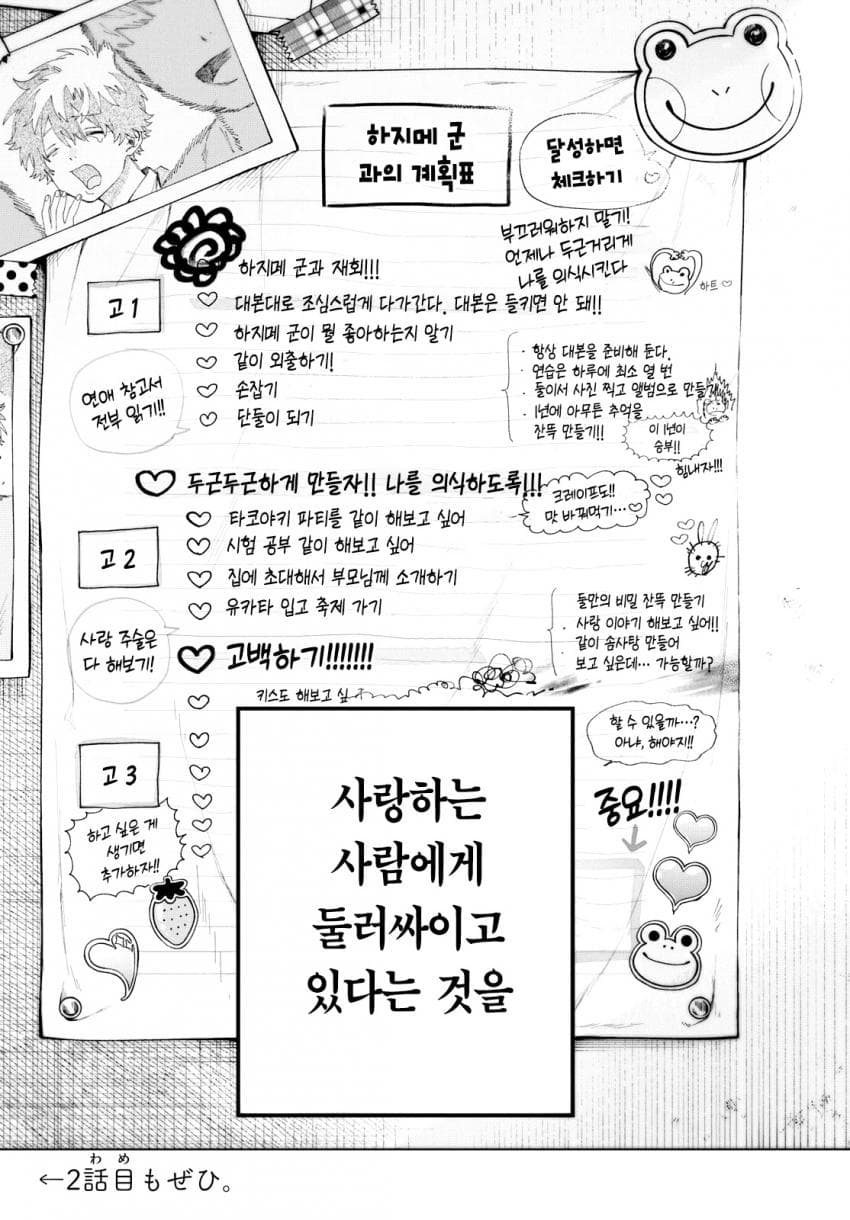 하지메 군
과의 계획표
달성하면
체크하기
부끄러워하지 말기!
언제나 두근거리게
나를 의식시킨다
하트
하지메 군과 재회!!!
고1
대본대로 조심스럽게 다가간다. 대본은 들키면 안 돼!!
하지메 군이 뭘 좋아하는지 알기
같이 외출하기!
손잡기
단둘이 되기
연애 참고서
전부 읽기!!
· 항상 대본을 준비해 둔다.
· 연습은 하루에 최소 열 번
· 둘이서 사진 찍고 앨범으로 만들기
· 1년에 아무튼 추억을
잔뜩 만들기!!
이 1년이
승부!!
힘내자!!!
두근두근하게 만들자!! 나를 의식하도록!!!
크레이프도!!
맛 바꿔먹기…
타코야키 파티를 같이 해보고 싶어
고2
시험 공부 같이 해보고 싶어
집에 초대해서 부모님께 소개하기
유카타 입고 축제 가기
사랑 주술은
다 해보기!
둘만의 비밀 잔뜩 만들기
· 사랑 이야기 해보고 싶어!!
· 같이 솜사탕 만들어
보고 싶은데… 가능할까?
고백하기!!!!!!!
키스도 해보고 싶
할 수 있을까…?
아냐, 해야지!!
고3
중요!!!!
하고 싶은 게
생기면
추가하자!!
사랑하는
사람에게
둘러싸이고
있다는 것을
わ め
←2話目もぜひ。